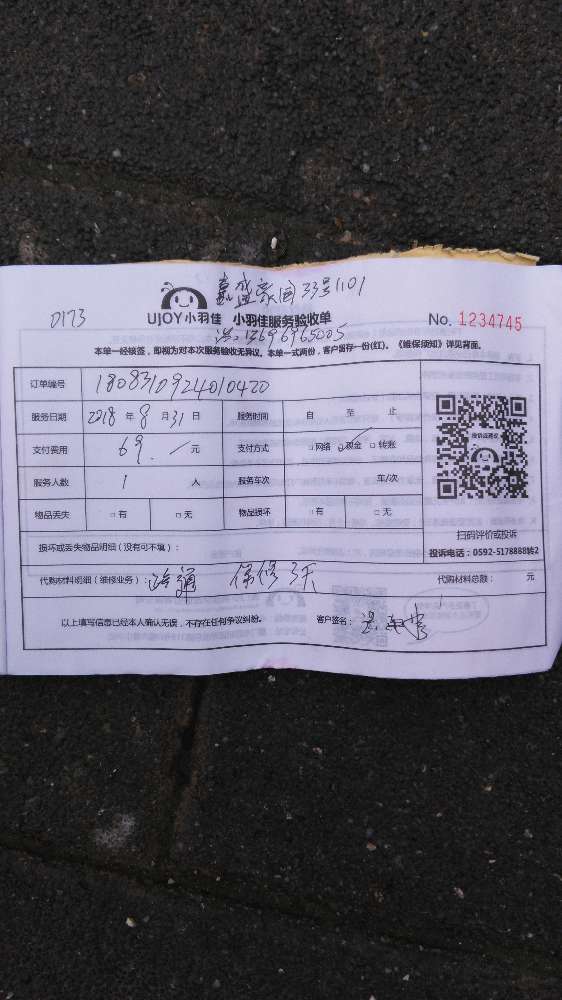 嘉盛豪园33号1101
0173
UJOY小羽佳 小羽佳服务验收单 No. 1234745
13696965005
本单一经核签，即视为对本次服务验收无异议。本单一式两份，客户暂存一份(红)。《维保须知》详见背面。
订单编号 1808310924010420
服务日期 2018 年 8 月 31 日 服务时间 自 至 止
支付费用 69. 元 支付方式 □网络 ☑现金 □转账
服务人数 1 人 服务车次 车/次
物品丢失 □有 □无 物品损坏 □有 □无
微信送祝福
扫码评价或投诉
投诉电话：0592-5178888转2
损坏或丢失物品明细（没有可不填）：
代购材料明细（维修业务）： 疏通 保修3天 代购材料总额： 元
以上填写信息已经本人确认无误，不存在任何争议纠纷。 客户签名：